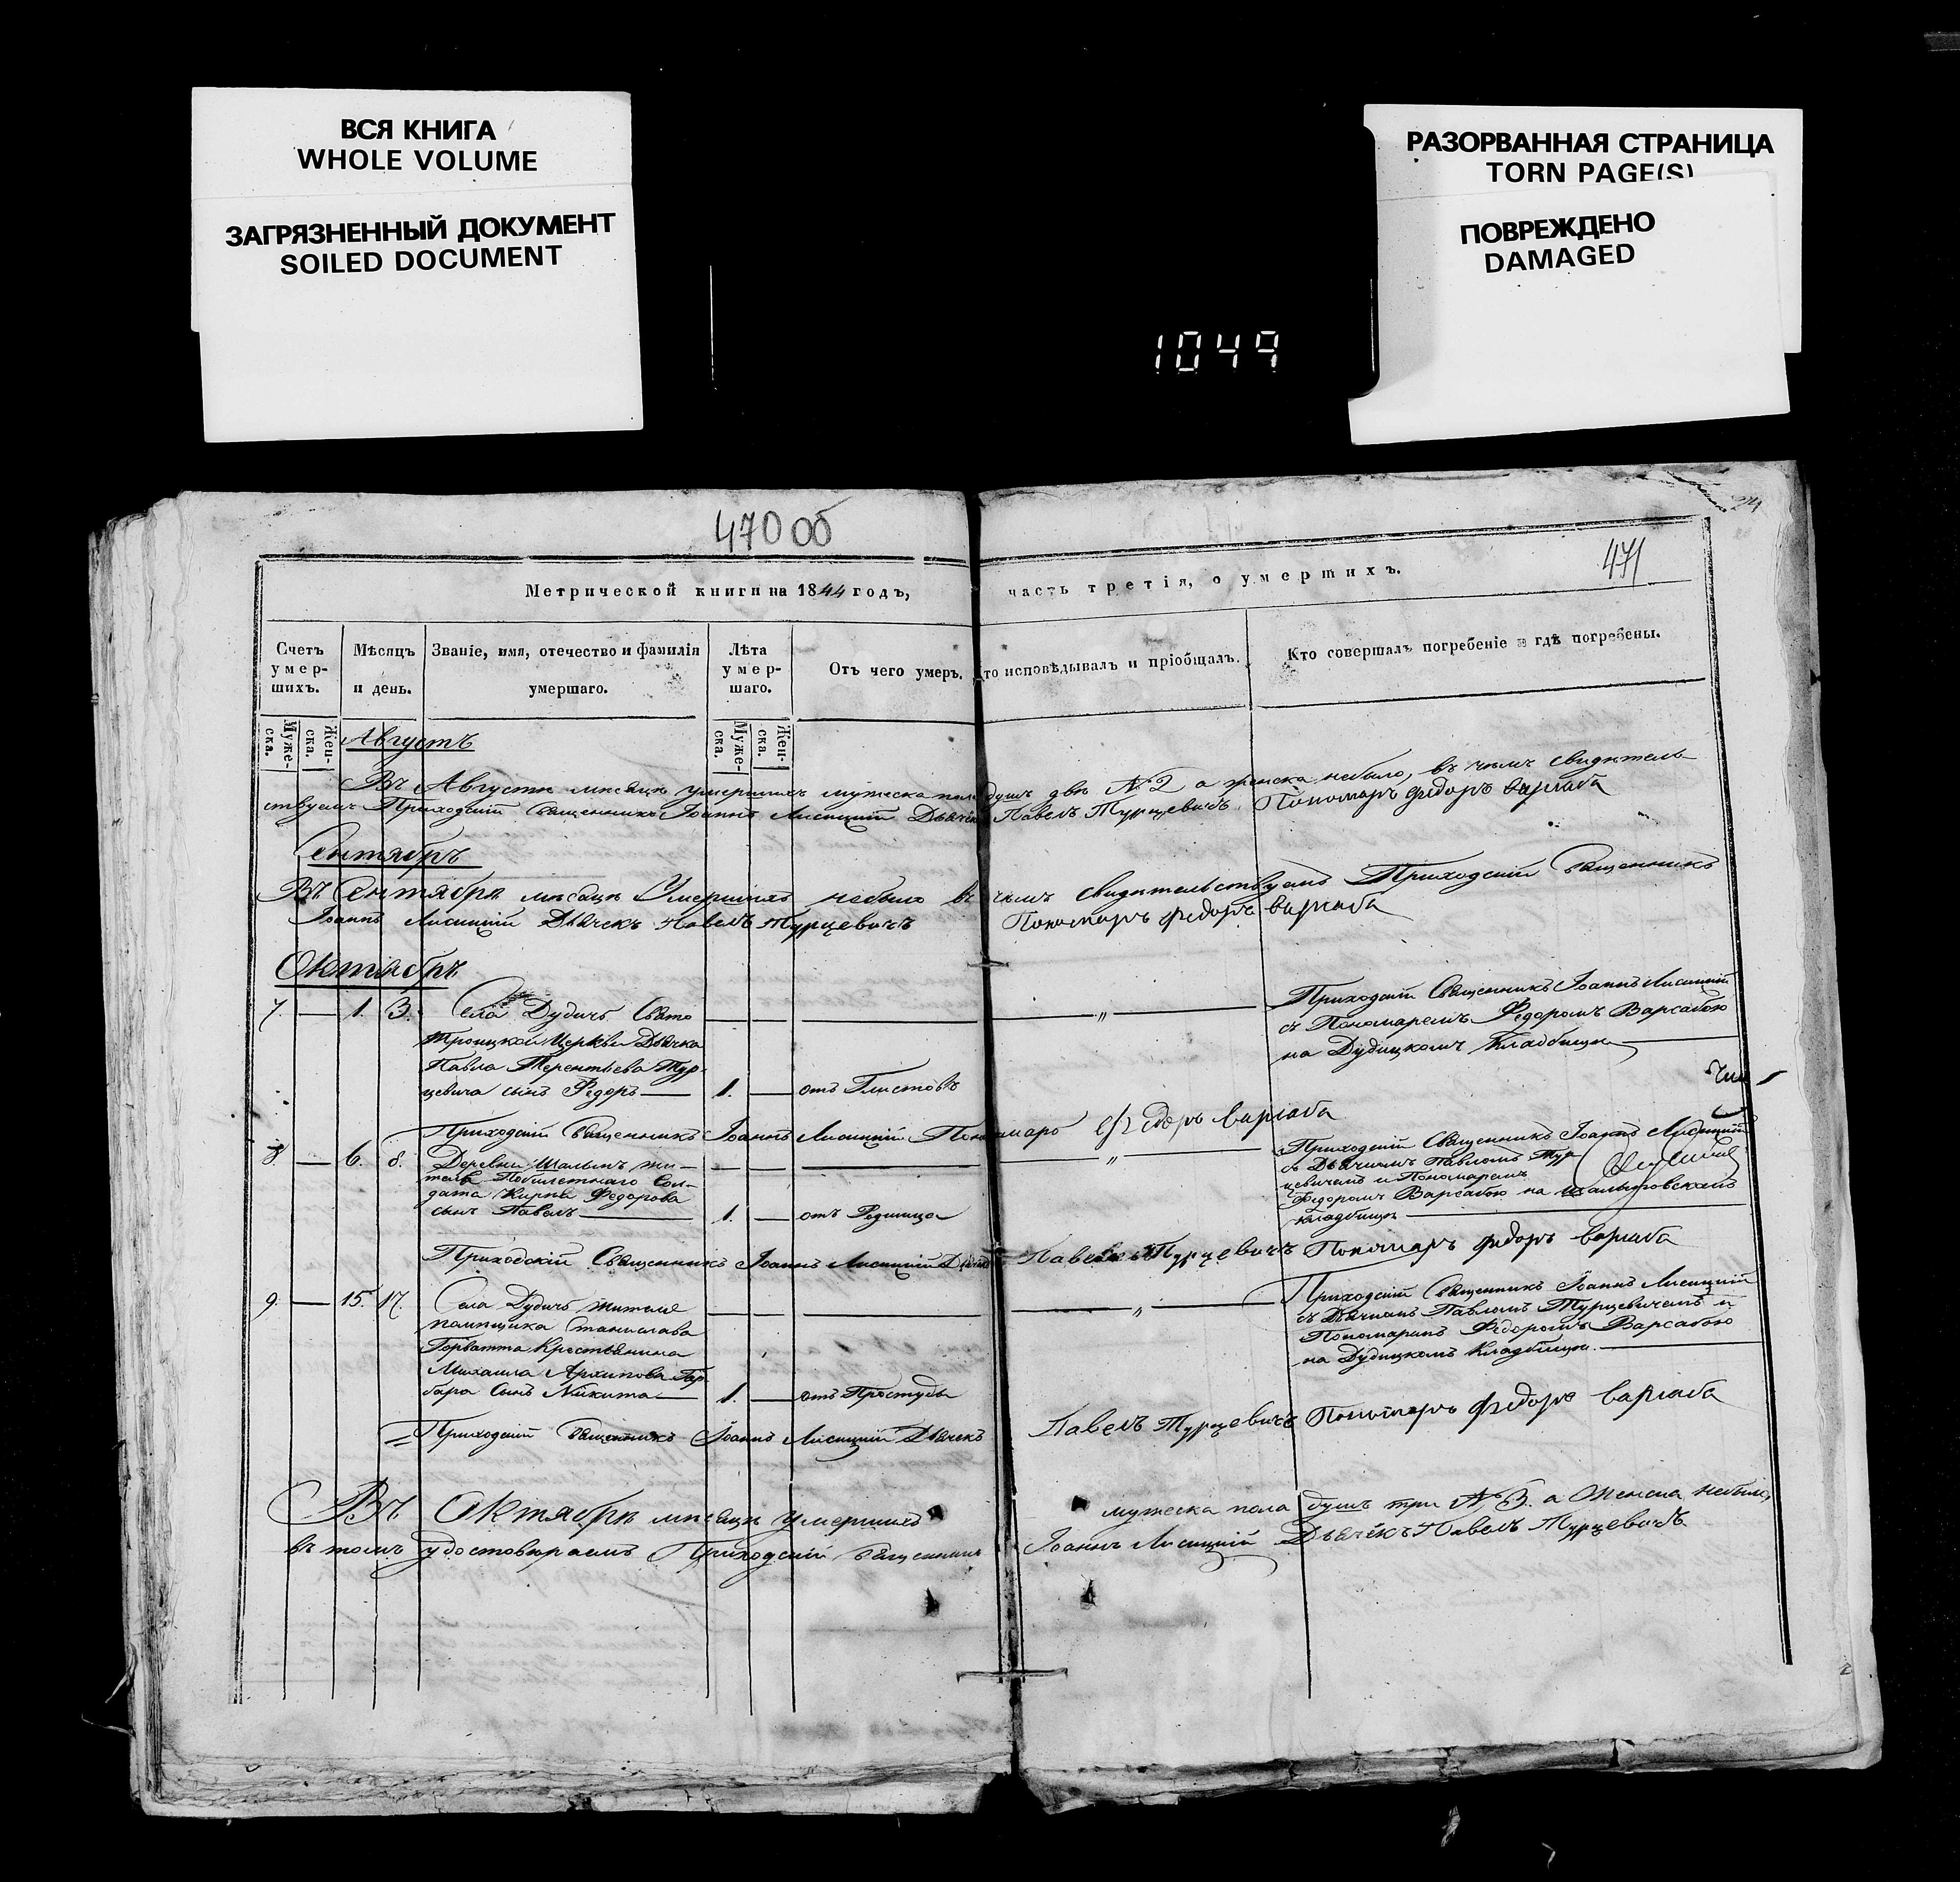 ВСЯ КНИГА
WHOLE VOLUME
ЗАГРЯЗНЕННЫЙ ДОКУМЕНТ
SOILED DOCUMENT
РАЗОРВАННАЯ СТРАНИЦА
TORN PAGE(S)
ПОВРЕЖДЕНО
DAMAGED
1049
470 об
24
471
Метрической книги на 1844 годъ, часть третія, о умершихъ.
Счетъ умер-шихъ.
Мѣсяцъ и день.
Званіе, имя, отечество и фамилія умершаго.
Лѣта умер-шаго.
Отъ чего умеръ.
то исповѣдывалъ и пріобщалъ.
Кто совершалъ погребеніе и гдѣ погребены.
Муже-ска.
Жен-ска.
Муже-ска.
Жен-ска.
Августъ
Въ Августѣ мѣсяцѣ умершихъ мужеска пола душъ двѣ № 2 а женска небыло, въ чемъ свидѣтель-
ствуемъ Приходскій Священникъ Іоаннъ Лисицкій Дьячекъ Павелъ Турцевичъ Пономаръ Федоръ Варсаба
Сентябрь
Въ Сентябрѣ мѣсяцѣ Умершихъ небыло въ чемъ свидѣтельствуемъ Приходскій Священникъ
Іоаннъ Лисицкій Дьячекъ Павелъ Турцевичъ Пономаръ Федоръ Варсаба
Октябрь
7. — 1. 3. Села Дудичъ Свято
Троицкой Церкви Дьячка
Павла Терентьева Тур-
цевича сынъ Федоръ — 1. — отъ Глистовъ
Приходскій Священникъ Іоаннъ Лисицкій
съ Пономаремъ Федоромъ Варсабою
на Дудицкомъ Кладбищѣ
Приходскій Священникъ Іоаннъ Лисицкій Пономаръ Федоръ Варсаба
8. — 6. 8. Деревни Шалыпъ жи-
теля Сол-
дата Кирилы Федорова
сынъ Павелъ — 1. — отъ Родимца
Приходскій Священникъ Іоаннъ Лисицкій
съ Дьячкомъ Павломъ Тур
цевичемъ и Пономаремъ
Федоромъ Варсабою на
кладбищѣ
Приходскій Священникъ Іоаннъ Лисицкій Дьячекъ Павелъ Турцевичъ Пономаръ Федоръ Варсаба
9. — 15. 17. Села Дудичъ жителя
помѣщика Станислава
Горватта Крестьянина
Михаила Архипова
сынъ Никита — 1. — отъ Простуды
Приходскій Священникъ Іоаннъ Лисицкій
съ Дьячкомъ Павломъ Турцевичемъ и
Пономаремъ Федоромъ Варсабою
на Дудицкомъ Кладбищѣ.
Приходскій Священникъ Іоаннъ Лисицкій Дьячекъ Павелъ Турцевичъ Пономаръ Федоръ Варсаба
Въ Октябрѣ мѣсяцѣ умершихъ мужеска пола душъ три № 3. а Женска небыло,
въ томъ удостовѣряемъ Приходскій Священникъ Іоаннъ Лисицкій Дьячекъ Павелъ Турцевичъ